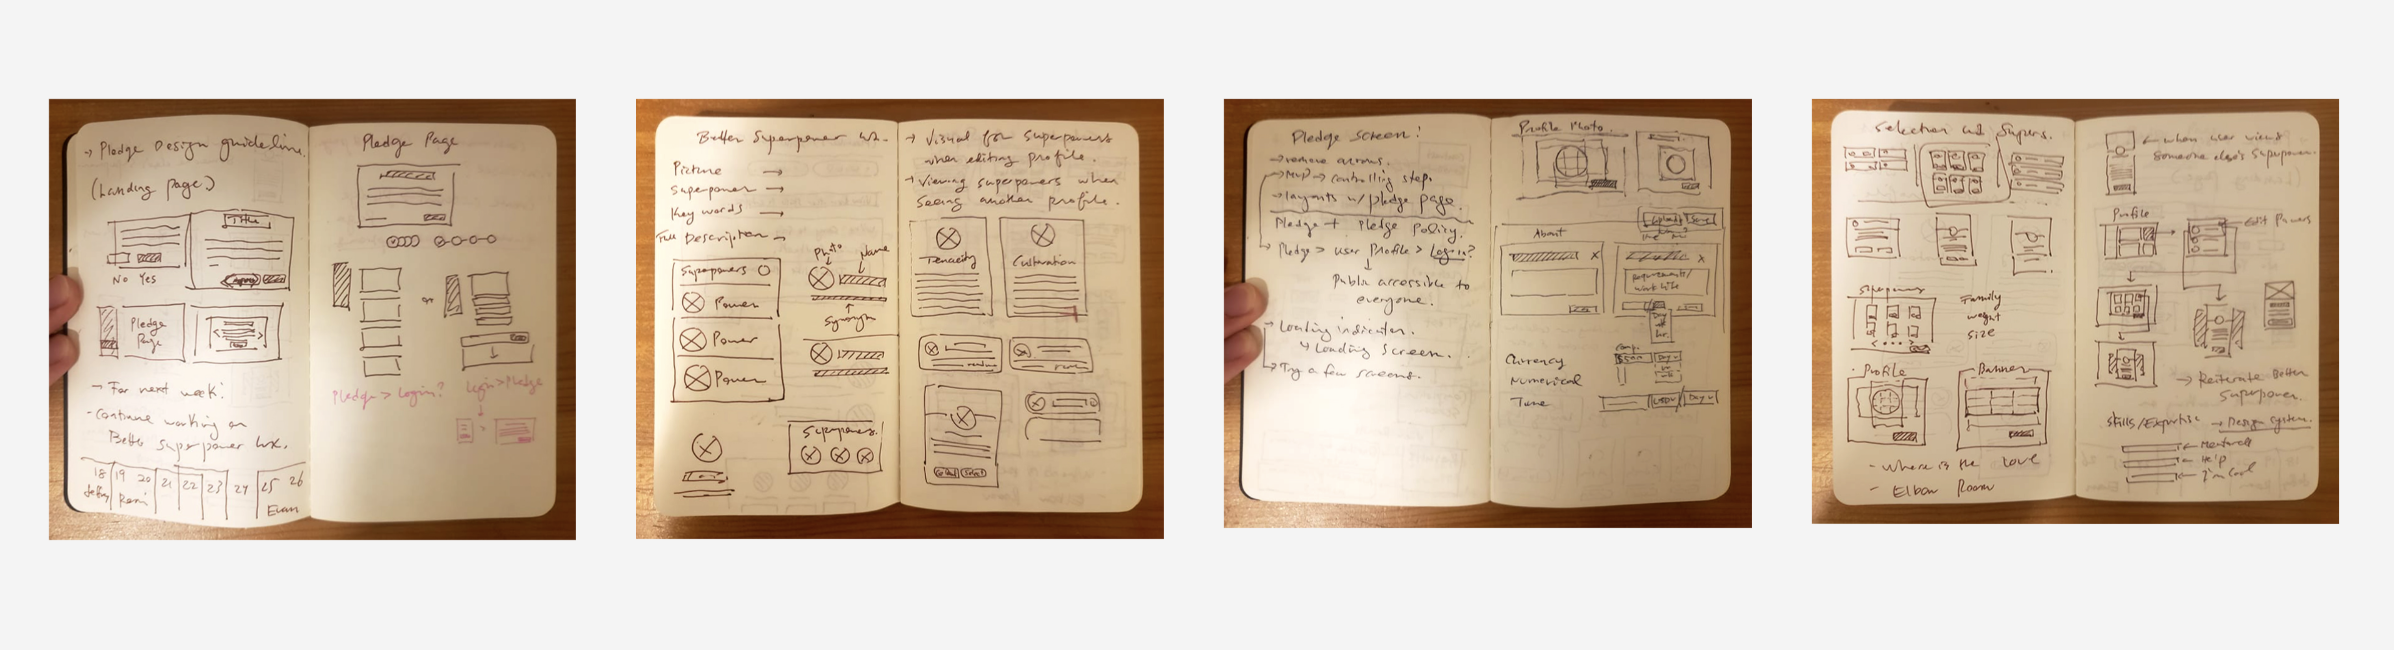 → Pledge Design guideline.
(Landing page)
Title
No Yes
Pledge
Page
→ For next week:
- Continue working on
Better superpower wx.
18 19 20 21 22 23 24 25 26
Remi
Evan
Pledge Page
or
Pledge > Login?
Login > Pledge
Better Superpower wx.
Picture →
Superpower →
Key words →
Full Description →
Photo
Name
Superpowers
Power
Power
Power
Synonym
Superpowers.
→ Visual for superpowers
when editing profile.
→ Viewing superpowers when
seeing another profile.
Tenacity
Cultivation
Select
Pledge Screen:
→ remove arrows.
→ MVP → controlling step.
→ layouts w/ pledge page.
Pledge + Pledge policy.
→ Pledge > User Profile > Login?
Public accessible to
everyone.
→ Loading indicator.
↳ Loading Screen.
→ Try a few screens.
Profile Photo.
Upload Save
About
X
X
Requirements/
Currency
Numerical
Time
Day
Selection w/ Supers.
Superpowers
Family
weight
size
Profile
Banner
- Where is the Love
- Elbow Room
← when user views
someone else's superpower.
Profile
Edit Powers
→ Reiterate Better
Superpower.
Skills/Expertise → Design System.
← Help
← I'm Cool